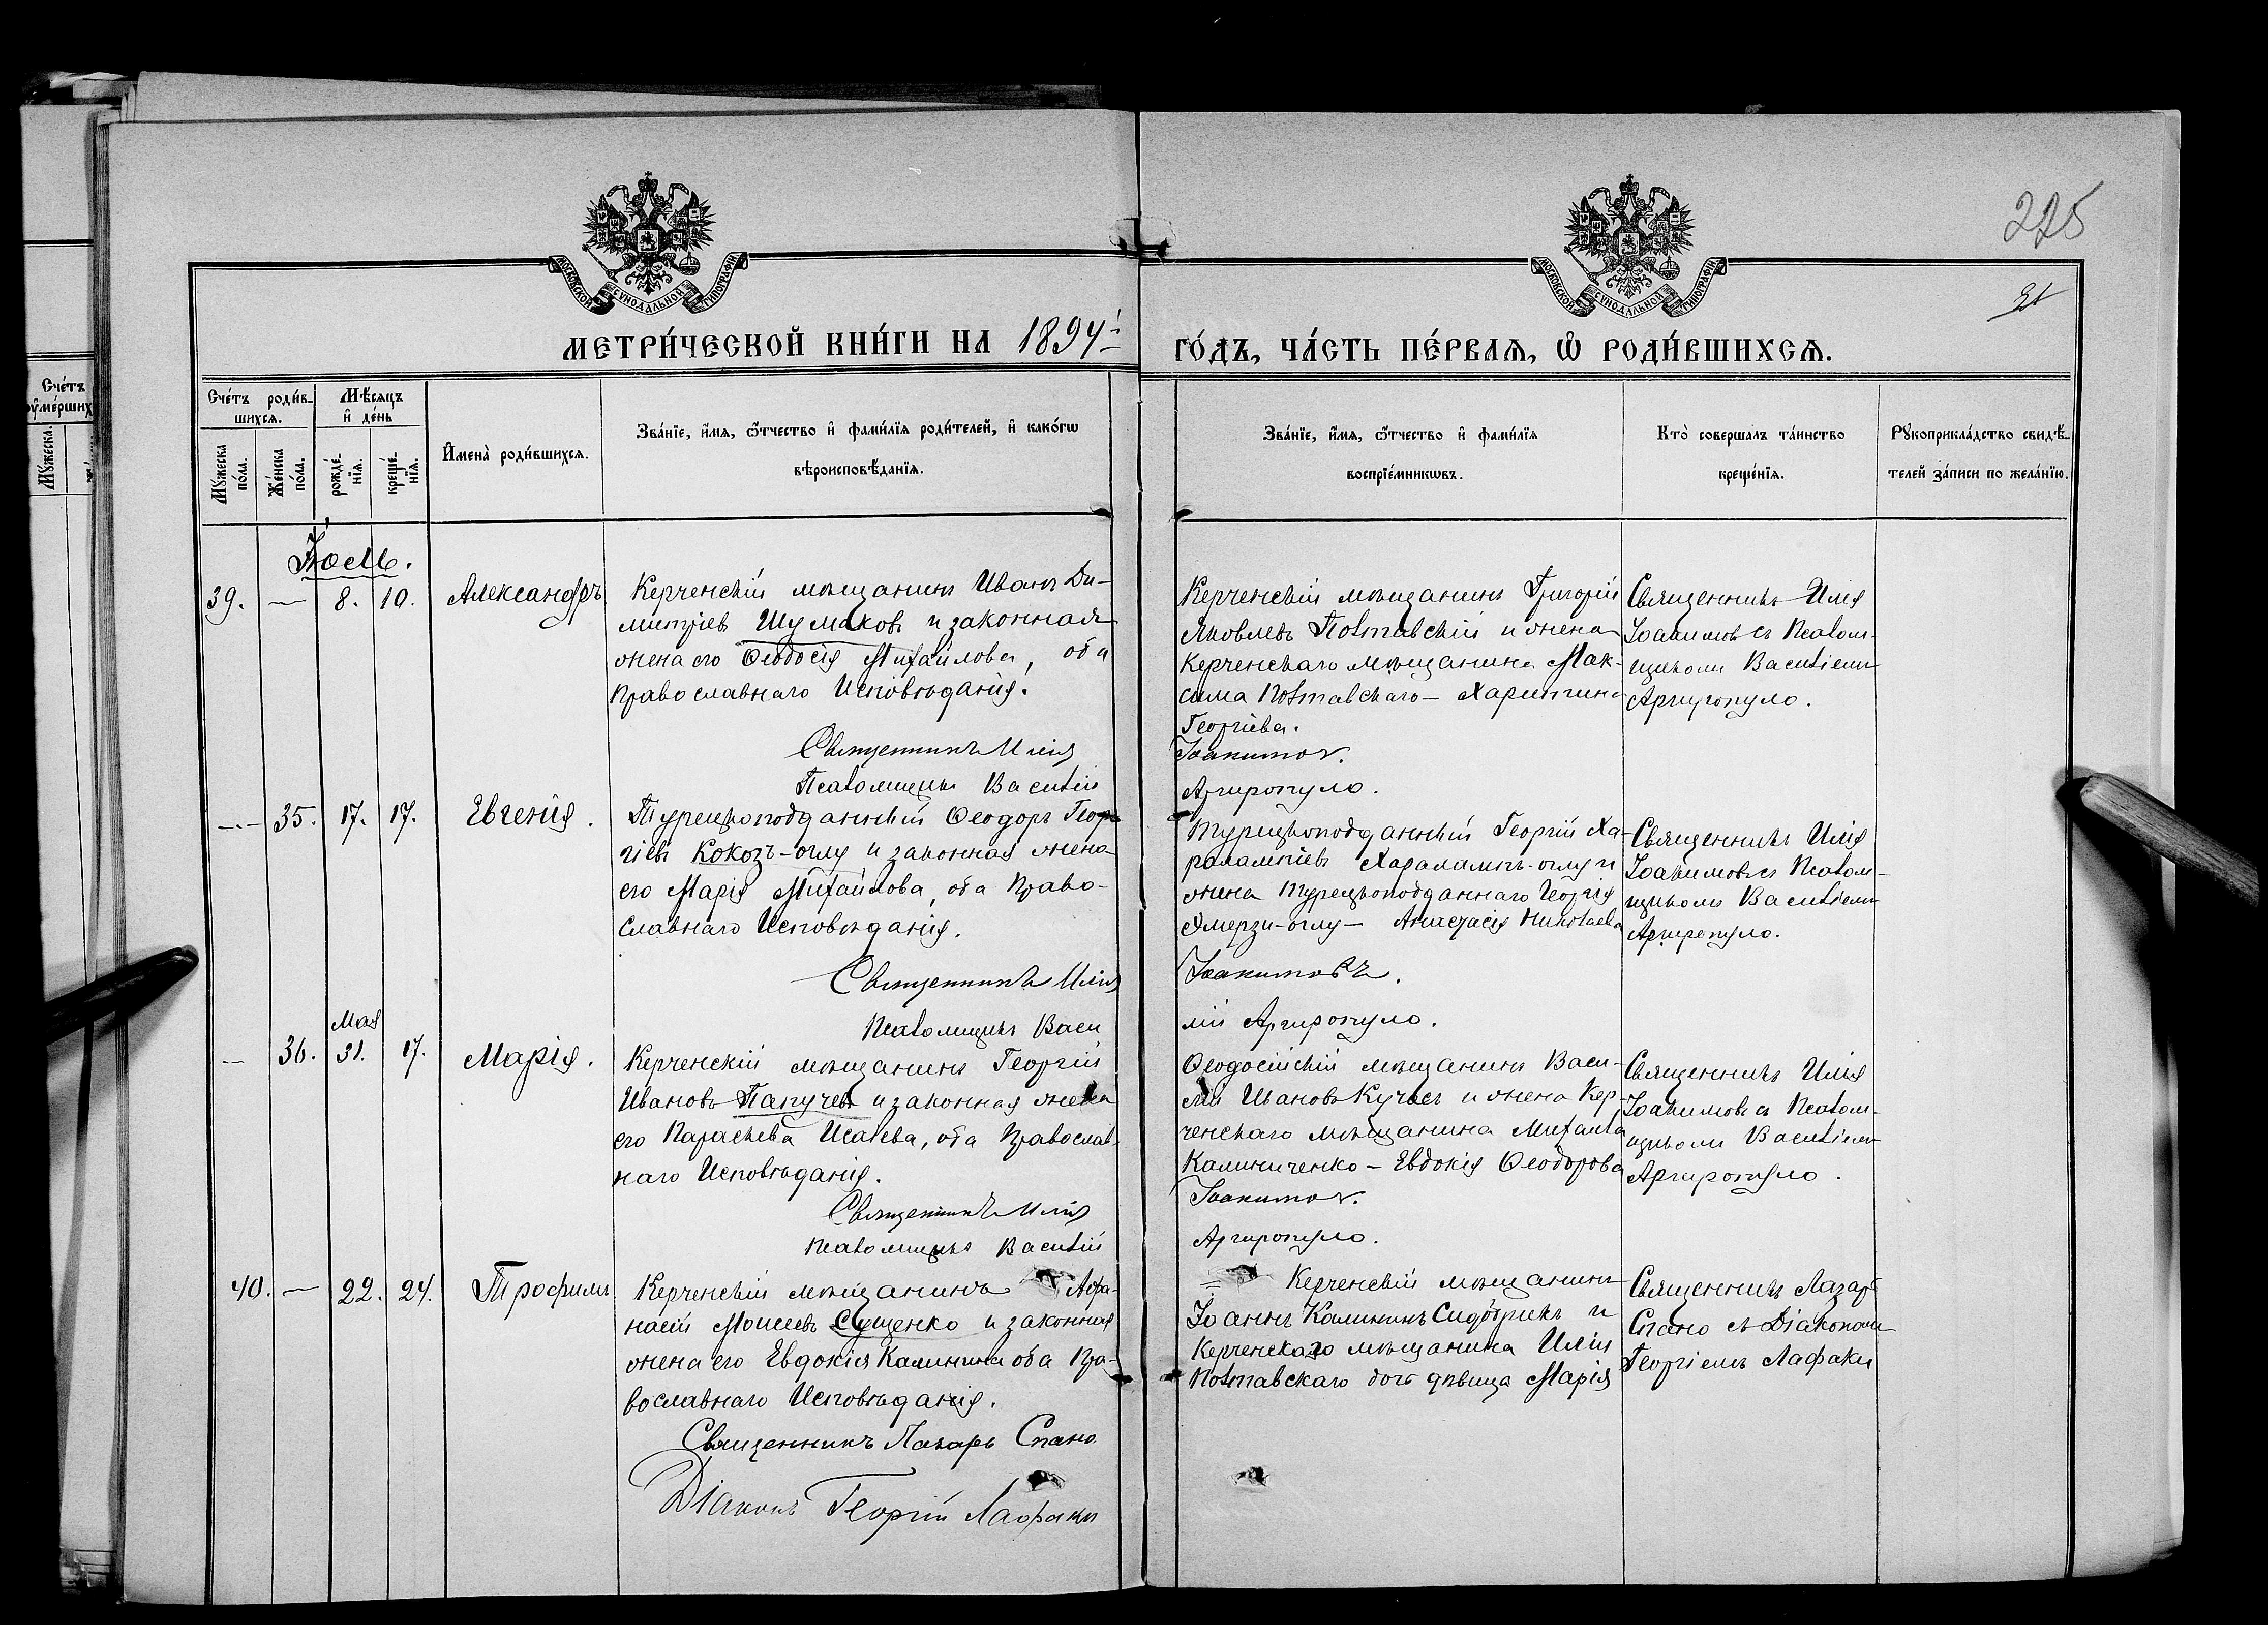 225
21
МОСКОВСКОЙ СѴНОДАЛЬНОЙ ТИПОГРАФІИ
МОСКОВСКОЙ СѴНОДАЛЬНОЙ ТИПОГРАФІИ
МЕТРИ́ЧЕСКОЙ КНИ́ГИ НА 1894й ГО́ДЪ, ЧА́СТЬ ПЕ́РВАѦ, Ѡ҆ РОДИ́ВШИХСѦ.
Сче́тъ
оу҆ме́рших
Мꙋ́жеска.
Сче́тъ роди́в-
шихсѧ.
Мꙋ́жеска по́ла.
Же́нска по́ла.
Мѣ́сѧцъ
и҆ де́нь
рожде́-
нїѧ.
креще́-
нїѧ.
И҆мена̀ роди́вшихсѧ.
Зва́нїе, и҆́мѧ, ѻ҆́тчество и҆ фами́лїѧ роди́телей, и҆ како́гѡ
вѣроисповѣ́данїѧ.
Зва́нїе, и҆́мѧ, ѻ҆́тчество и҆ фами́лїѧ
воспрїе́мникѡвъ.
Кто̀ соверша́лъ та́инство
креще́нїѧ.
Рꙋкоприкла́дство свидѣ́-
телей за́писи по жела́нїю.
Іюль.
39. — 8. 10. Александръ
Керченскій мѣщанинъ Иванъ Ди-
митріевъ Шумаковъ и законная
жена его Ѳеодосія Михайлова, оба
Православнаго Исповѣданія.
Священникъ Илія
Псаломщикъ Василій
Керченскій мѣщанинъ Григорій
Яковлевъ Полтавскій и жена
Керченскаго мѣщанина Мак-
сима Полтавскаго – Харитина
Георгіева.
Іоакимов.
Аргиропуло.
Священникъ Илія
Іоакимовъ съ Псалом-
щикомъ Василіемъ
Аргиропуло.
— 35. 17. 17. Евгенія.
Турецкоподданный Ѳеодоръ Геор-
гіевъ Кокозъ-оглу и законная жена
его Марія Михайлова, оба Право-
славнаго Исповѣданія.
Священникъ Илія
Псаломщикъ Васи
Турецкоподданный Георгій Ха-
ралампіевъ Хараламъ-оглу и
жена Турецкоподданнаго Георгія
Эмерзи-оглу – Анастасія Николаева
Іоакимовъ.
лій Аргиропуло.
Священникъ Илія
Іоакимовъ съ Псалом-
щикомъ Василіемъ
Аргиропуло.
— 36. Мая 31. 17. Марія.
Керченскій мѣщанинъ Георгій
Ивановъ Папучевъ и законная жена
его Параскева Исаева, оба Православ-
наго Исповѣданія.
Священникъ Илія
Псаломщикъ Василій
Ѳеодосійскій мѣщанинъ Васи-
лій Ивановъ и жена Кер-
ченскаго мѣщанина Михаила
Калиниченко – Евдокія Ѳеодорова
Іоакимов.
Аргиропуло.
Священникъ Илія
Іоакимовъ съ Псалом-
щикомъ Василіемъ
Аргиропуло.
40. — 22. 24. Трофимъ
Керченскій мѣщанинъ Аѳа-
насій Моисеевъ Сущенко и законная
жена его Евдокія Калинина оба Пра-
вославнаго Исповѣданія.
Священникъ Лазарь Спано
Діаконъ Георгій Лафаки
Керченскій мѣщанинъ
Іоаннъ Калининъ и
Керченскаго мѣщанина Иліи
Полтавскаго дочь дѣвица Марія
Священникъ Лазарь
Спано съ Діакономъ
Георгіемъ Лафаки